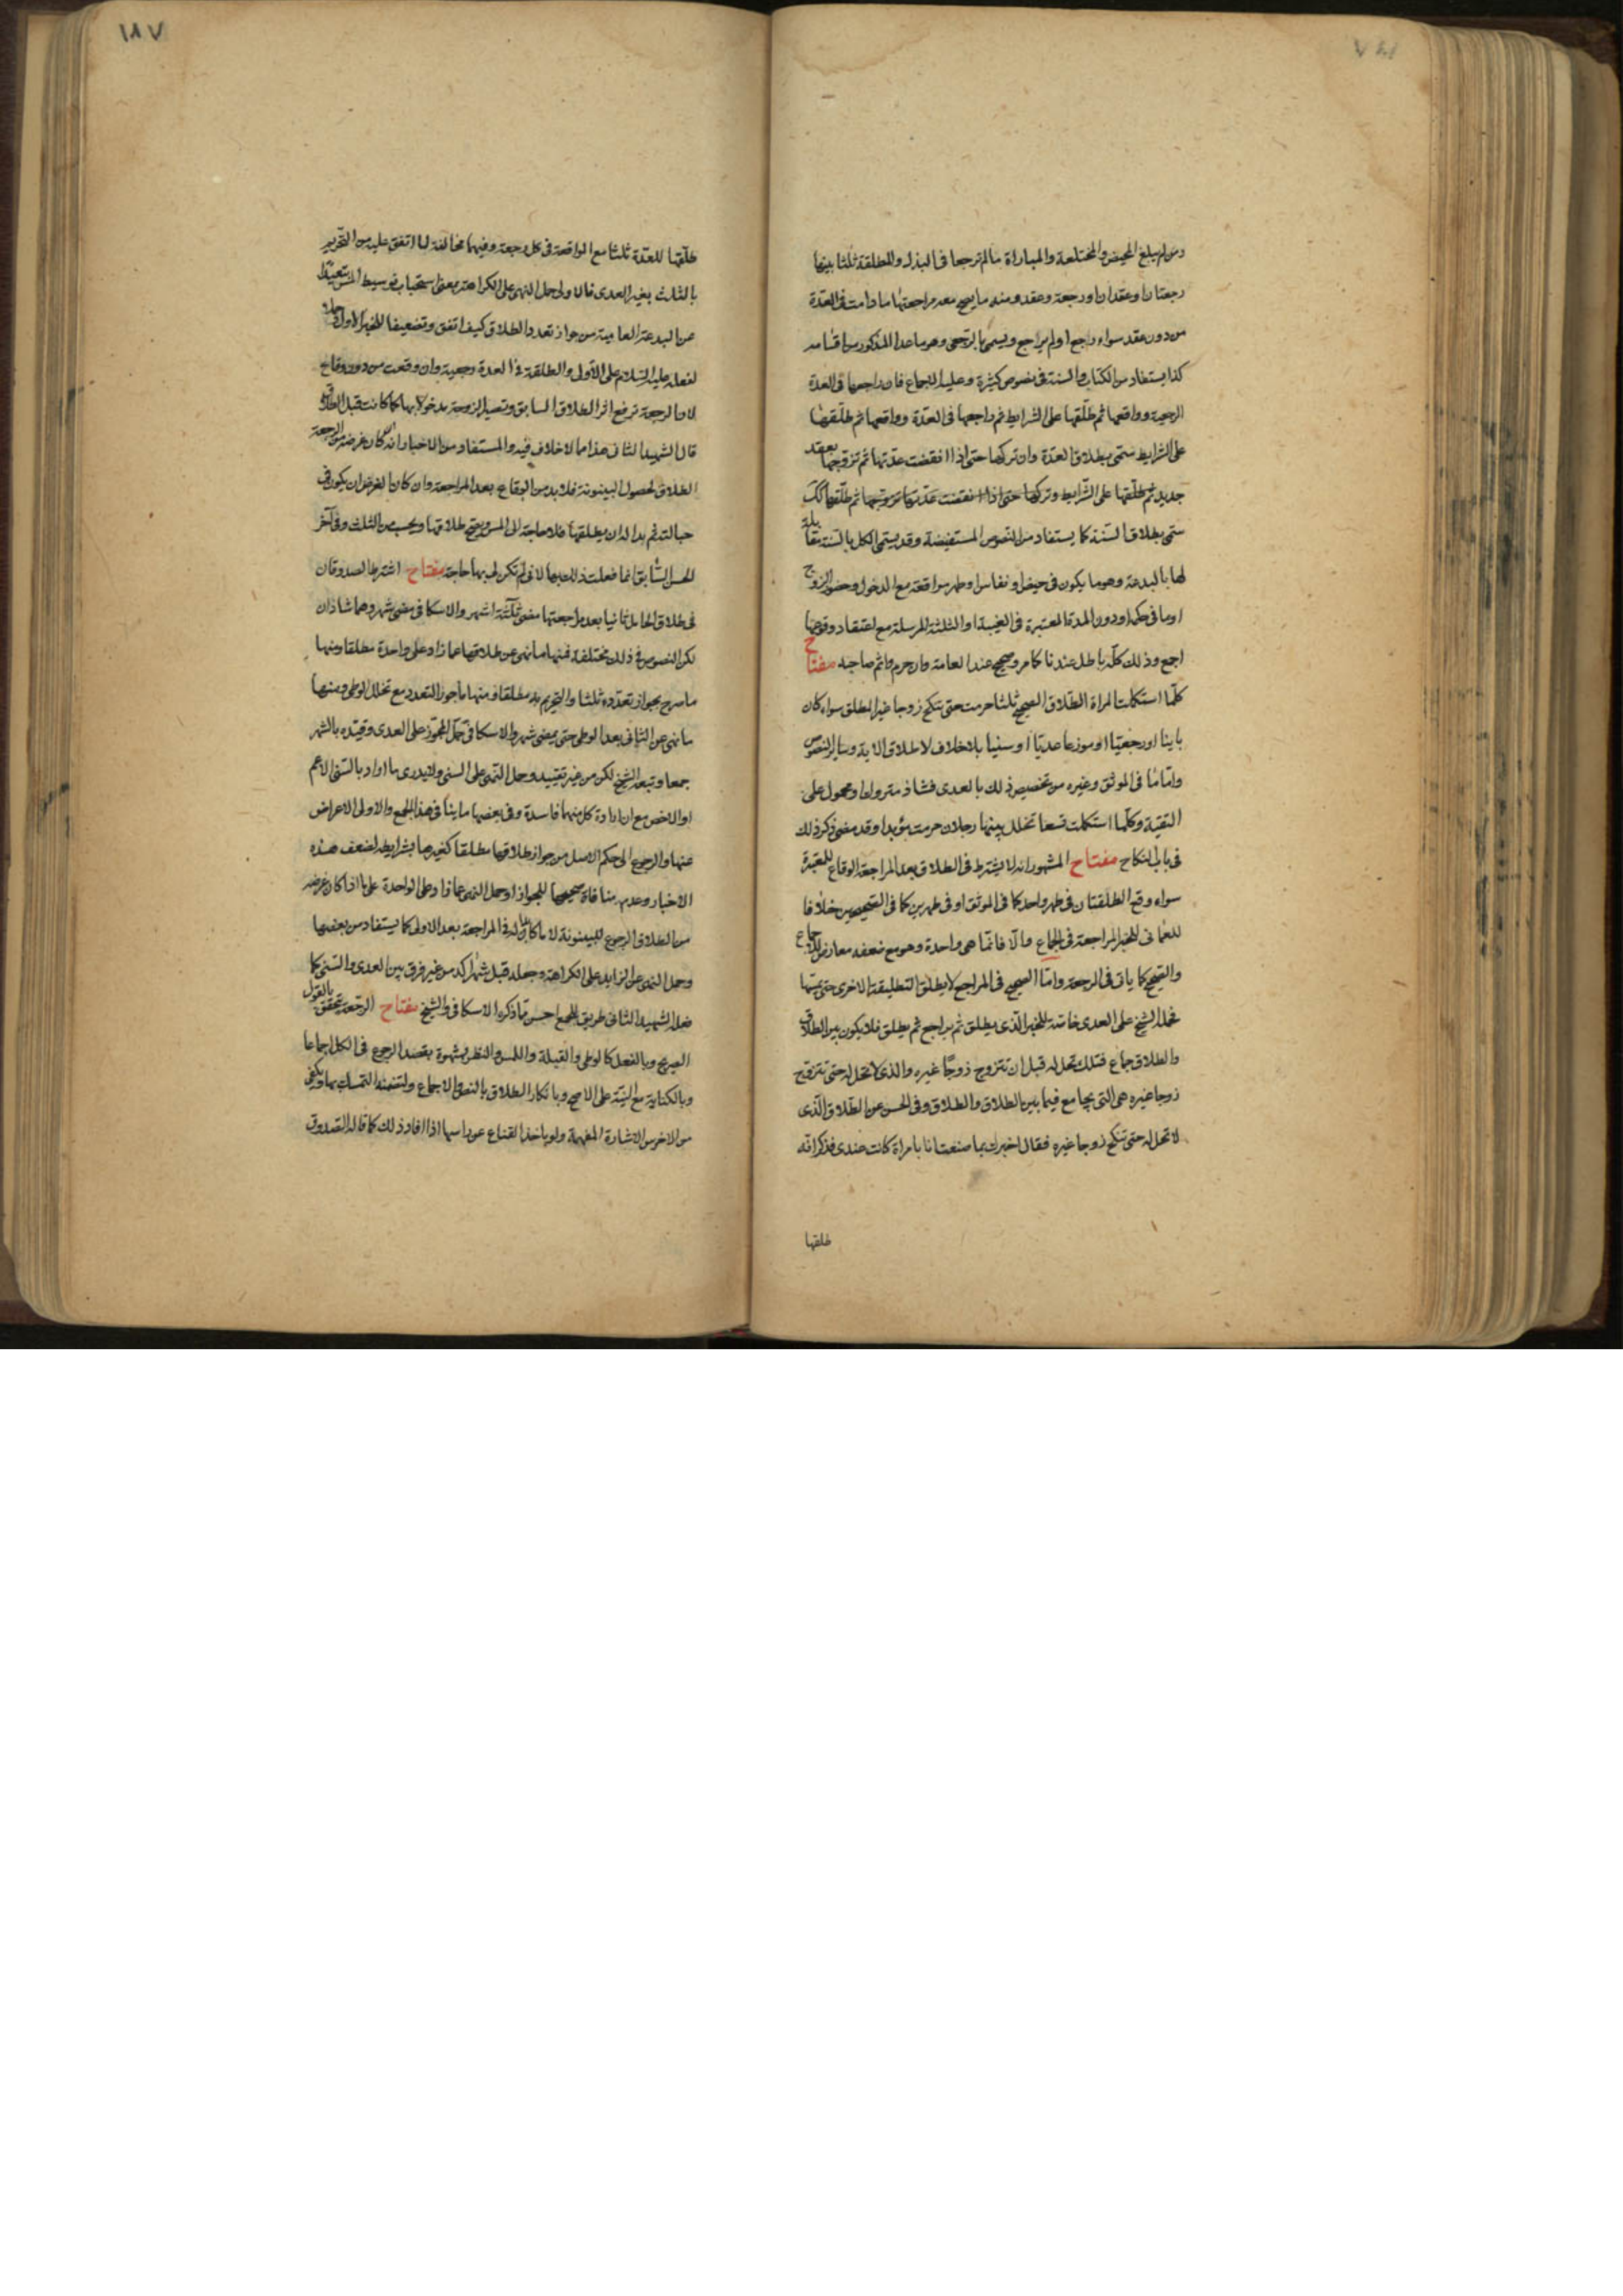 ومن لم يبلغ المحيض والمختلعة والمباراة ما لم ترجعا فى البذل والمطلقة ثلثا بينها
رجعتان او عقدان او رجعة وعقد ومنه ما يصح معه مراجعتها ما دامت فى العدة
من دون عقد سواء راجع او لم يراجع ويسمى بالرجعى وهو ما عدا المذكور من اقسامه
كذا يستفاد من الكتاب والسنة فى نصوص كثيرة وعليه الاجماع فان راجعها فى العدة
الرجعية وواقعها ثم طلّقها على الشرايط ثم راجعها فى العدّة وواقعها ثم طلّقها
على الشرايط سمّى بطلاق العدّة وان تركها حتى اذا انقضت عدّتها ثم تزوّجها بعقد
جديد ثم طلّقها على الشّرايط وتركها حتى اذا انقضت عدّتها تزوّجها ثم طلّقها كك
سمّى بطلاق السّنة كما يستفاد من النصوص المستفيضة وقد يسمّى الكل بالسّنة مقابلة
لها بالبدعة وهو ما يكون فى حيض او نفاس او طهر مواقعة مع الدخول وحضور الزوج
او ما فى حكمه او دون المدة المعتبرة فى الغيبة او الثلثة المرسلة مع اعتقاد وقوعها
اجمع وذلك كلّه باطل عندنا كما مر وصحيح عند العامة وان حرم واثم صاحبه مفتاح
كلّما استكملت المراة الطّلاق الصحيح ثلثا حرمت حتى تنكح زوجا غير المطلق سواء كان
باينا او رجعيّا او موزعا عديّا او سنيا بلا خلاف لاطلاق الاية وساير النصوص
وامّا ما فى الموثق وغيره من تخصيص ذلك بالعدى فشاذ متروك او محمول على
التقية وكلّما استكملت تسعا تخلل بينها رجلان حرمت مؤبدا وقد مضى ذكر ذلك
فى باب النكاح مفتاح المشهور انه لا يشترط فى الطلاق بعد المراجعة الوقاع للعدّة
سواء وقع الطلقتان فى طهر واحد كما فى الموثق او فى طهرين كما فى الصحيحين خلافا
للعمانى للخبر المراجعة فى الجماع والا فانّما هى واحدة وهو مع ضعفه معارض للاجماع
والصّحيح كما ياتى فى الرجعة وامّا الصحيح فى المراجع لا يطلق التطليقة الاخرى حتى يمسّها
فحمله الشيخ على العدى خاصّة للخبر الّذى يطلق ثم يراجع ثم يطلق فلا يكون بين الطلاق
والطلاق جماع فتلك تحل له قبل ان تتزوج زوجًا غيره والذى لا تحل له حتى تتزوج
زوجا غيره هى التى يجامع فيما بين الطلاق والطلاق وفى الحسن عن الطّلاق الّذى
لا تحل له حتى تنكح زوجا غيره فقال اخبرك بما صنعت انا بامراة كانت عندى فذكر انّه
طلقها
١٨٧
طلّقها للعدّة ثلثا مع المواقعة فى كل رجعة وفيهما مخالفة لما اتفق عليه من التّحريم
بالثلث بغير العدى فالاولى حمل النهى على الكراهة بمعنى استحباب توسيط المسّ تبعيدا
عن البدعة العامية من جواز تعدد الطلاق كيف اتفق وتضعيفا للخبر الاول وحملا
لفعله عليه السّلام على الاولى والطلقة فى العدة رجعية وان وقعت من دون وقاع
لان الرجعة ترفع اثر الطلاق السابق وتصير الزوجة مدخولا بها كما كانت قبل الطلاق
قال الشهيد الثانى هذا مما لا خلاف فيه والمستفاد من الاخبار انه ان كان غرضه من الرجعة
الطلاق لحصول البينونة فلا بد من الوقاع بعد المراجعة وان كان الغرض ان يكون فى
حبالته ثم بدا له ان يطلقها فلا حاجة الى المس ويصح طلاقها ويحسب من الثلث وفى آخر
الحسن السّابق انما فعلت ذلك بها لانى لم تكن لى بها حاجة مفتاح اشترط الصدوقان
فى طلاق الحامل ثانيا بعد مراجعتها مضى ثلثة اشهر والاسكافى مضى شهر وهما شاذان
لكن النصوص فى ذلك مختلفة فمنها ما نهى عن طلاقها عما زاد على واحدة مطلقا ومنها
ما صرح بجواز تعدّده ثلثا والتحريم به مطلقا ومنها ما جوز التعدد مع تخلل الوطى ومنها
ما نهى عن الثانى بعد الوطى حتى يمضى شهر والاسكافى حمل المجوّز على العدى وقيّده بالشهر
جمعا وتبعه الشيخ لكن من غير تقييد وحمل النهى على السنى ولا يدرى ما اراد بالسّنى الاعم
او الاخص مع ان ارادة كل منهما فاسدة وفى بعضها ما ينافى هذا الجمع والاولى الاعراض
عنها والرجوع الى حكم الاصل من جواز طلاقها مطلقا كغيرها بشرايطه لضعف هذه
الاخبار وعدم منافاة صحيحها للجواز او حمل النهى عما زاد على الواحدة على ما اذا كان غرضه
من الطلاق الرجوع للبينونة لا ما كان بدا له فى المراجعة بعد الاولى كما يستفاد من بعضها
وحمل النهى عن الزايد على الكراهة وجعله قبل شهر اكد من غير فرق بين العدى والسّنى كما
فعله الشهيد الثانى طريق للجمع احسن ممّا ذكره الاسكافى والشيخ مفتاح الرّجعة تتحقق بالقول
الصريح وبالفعل كالوطى والقبلة واللمس والنظر بشهوة بقصد الرجوع فى الكل اجماعا
وبالكناية مع النيّة على الاصح وبانكار الطلاق بالنص والاجماع ولتضمنه التمسك بها ويكفى
من الاخرس الاشارة المفهمة ولو باخذ القناع عن راسها اذا افاد ذلك كما قاله الصّدوق